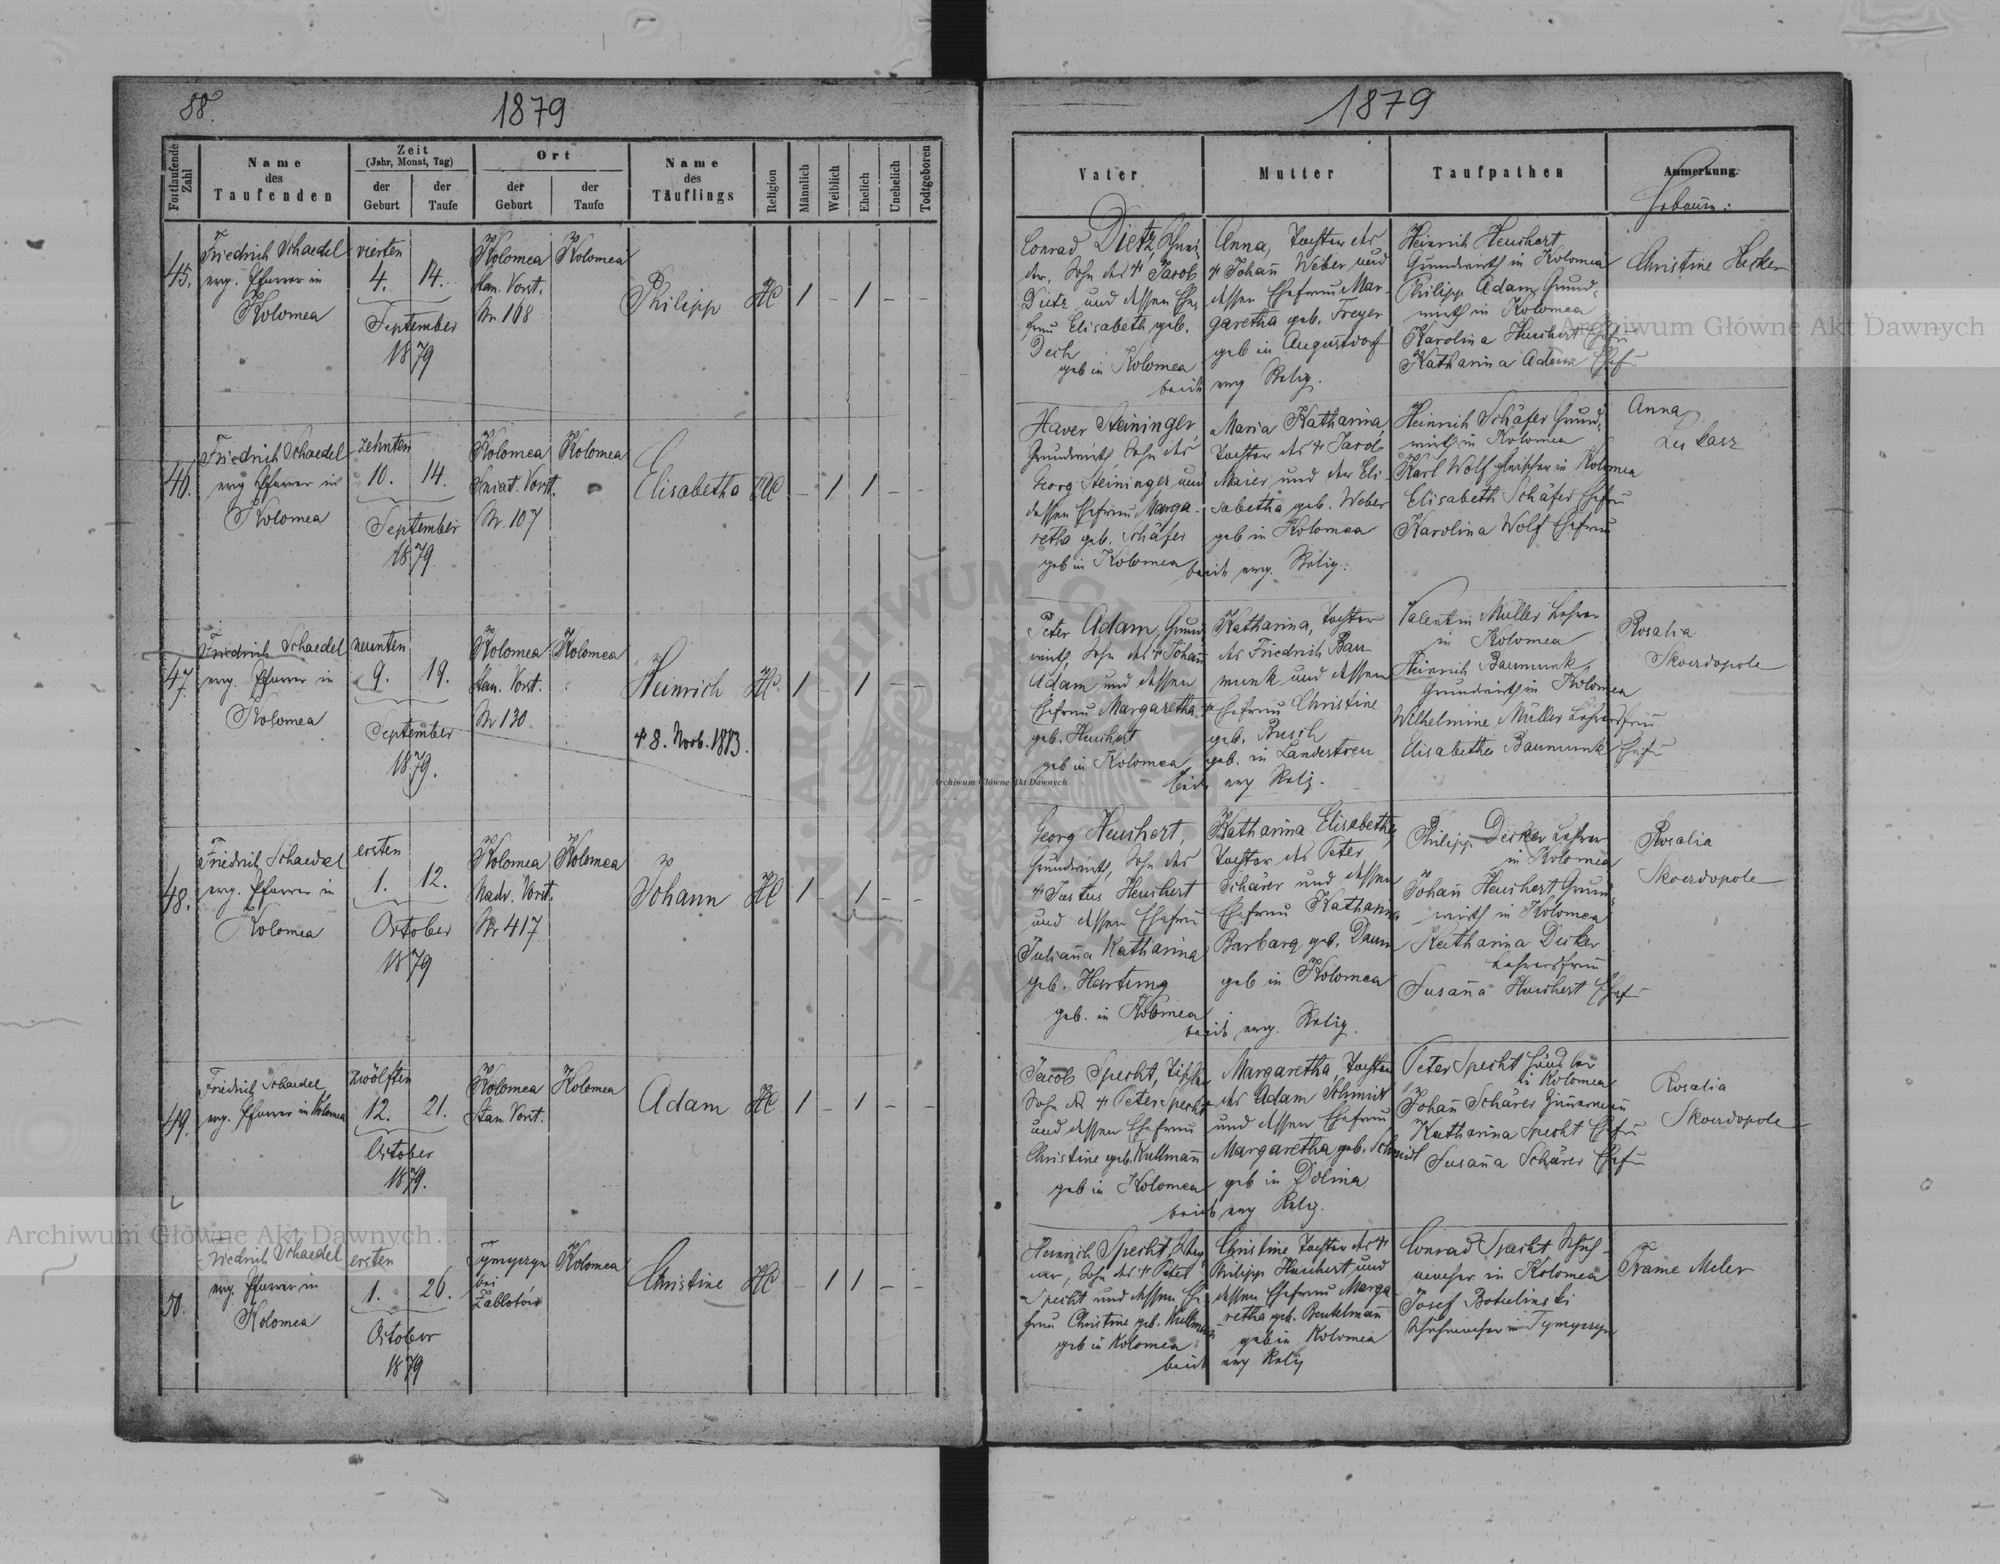 88.
1879
1879
Fortlaufende Zahl
Name
des
Taufenden
Zeit
(Jahr, Monat, Tag)
der
Geburt
der
Taufe
Ort
der
Geburt
der
Taufe
Name
des
Täuflings
Religion
Männlich
Weiblich
Ehelich
Unehelich
Todtgeboren
Vater
Mutter
Taufpathen
Anmerkung.
45.
Friedrich Schaedel
evg. Pfarrer in
Kolomea
vierten
4. 14.
September
1879
Kolomea
Stan. Vorst.
Nr 168
Kolomea
Philipp
HC
1 – 1 – –
Conrad Dietz, Schnei-
der, Sohn des † Jacob
Dietz und dessen Ehe-
frau Elisabeth geb.
Dech
geb in Kolomea
beide evg Relig.
Anna, Tochter des
† Johañ Weber und
dessen Ehefrau Mar-
garetha geb. Freyer
geb in Augustdorf
Heinrich Heuchert
Grundwirth in Kolomea
Philipp Adam Grund-
wirth in Kolomea
Karolina Heuchert Ehefr
Katharina Adam Ehefr
Christine Hecker
46.
Friedrich Schaedel
evg Pfarrer in
Kolomea
zehnten
10. 14.
September
1879.
Kolomea
Sniat. Vorst.
Nr. 107
Kolomea
Elisabetha
HC
– 1 1 – –
Xaver Steininger,
Grundwirth Sohn des
Georg Steininger und
dessen Ehefrau Marga-
retha geb. Schäfer
geb in Kolomea
beide evg. Relig.
Maria Katharina,
Tochter des † Jacob
Maier und der Eli-
sabetha geb. Weber
geb in Kolomea
Heinrich Schäfer Grund-
wirth in Kolomea
Karl Wolf Fleischer in Kolomea
Elisabeth Schäfer Ehefrau
Karolina Wolf Ehefrau
Anna
47.
Friedrich Schaedel
evg. Pfarrer in
Kolomea
neunten
9. 19.
September
1879.
Kolomea
Stan. Vorst.
Nr 130
Kolomea
Heinrich
† 8. Novb. 1883.
HC
1 – 1 – –
Peter Adam, Grund-
wirth, Sohn des † Johañ
Adam und dessen
Ehefrau Margaretha
geb. Heuchert
geb in Kolomea
beide evg Relig.
Katharina, Tochter
des Friedrich Bau-
munk und dessen
Ehefrau Christine
geb. Busch
geb. in Landestreu
Valentin Müller Lehrer
in Kolomea
Heinrich Baumunk,
Grundwirth in Kolomea
Wilhelmine Müller Lehrersfrau
Elisabetha Baumunk Ehefr
Rosalia
Skoerdopole
48.
Friedrich Schaedel
evg. Pfarrer in
Kolomea
ersten
1. 12.
October
1879
Kolomea
Nadw. Vorst.
Nr 417
Kolomea
Johann
HC
1 – 1 – –
Georg Heuchert,
Grundwirth, Sohn des
† Justus Heuchert
und dessen Ehefrau
Juliaña Katharina
geb. Hartung
geb. in Kolomea
beide evg. Relig.
Katharina Elisabetha,
Tochter des Peter
Schärer und dessen
Ehefrau Katharina
Barbara geb. Daum
geb in Kolomea
Philipp Decker Lehrer
in Kolomea
Johañ Heuchert Grund-
wirth in Kolomea
Katharina Decker
Lehrersfrau
Susaña Heuchert Ehefr
Rosalia
Skoerdopole
49.
Friedrich Schaedel,
evg. Pfarrer in Kolomea
zwölften
12. 21.
October
1879.
Kolomea
Stan Vorst.
Kolomea
Adam
HC
1 – 1 – –
Jacob Specht,
Sohn des † Peter Specht
und dessen Ehefrau
Christine geb. Kullmañ
geb in Kolomea
beide evg Relig.
Margaretha, Tochter
des Adam Schmidt
und dessen Ehefrau
Margaretha geb. Schmidt
geb in Dolina
Peter Specht
in Kolomea
Johañ Schärer Zimermañ
Katharina Specht Ehefr
Susaña Schärer Ehefr
Rosalia
Skoerdopole
50.
Friedrich Schaedel
evg. Pfarrer in
Kolomea
ersten
1. 26.
October
1879
bei
Zablotow
Kolomea
Christine
HC
– 1 1 – –
Heinrich Specht,
Sohn des † Peter
Specht und dessen Ehe-
frau Christine geb. Kullmañ
geb in Kolomea
beide evg Relig
Christine Tochter des †
Philipp Heuchert und
dessen Ehefrau Marga-
retha geb.
geb in Kolomea
Conrad Specht Schuh-
macher in Kolomea
Josef
Schuhmacher in
Archiwum Główne Akt Dawnych
Archiwum Główne Akt Dawnych
Archiwum Główne Akt Dawnych